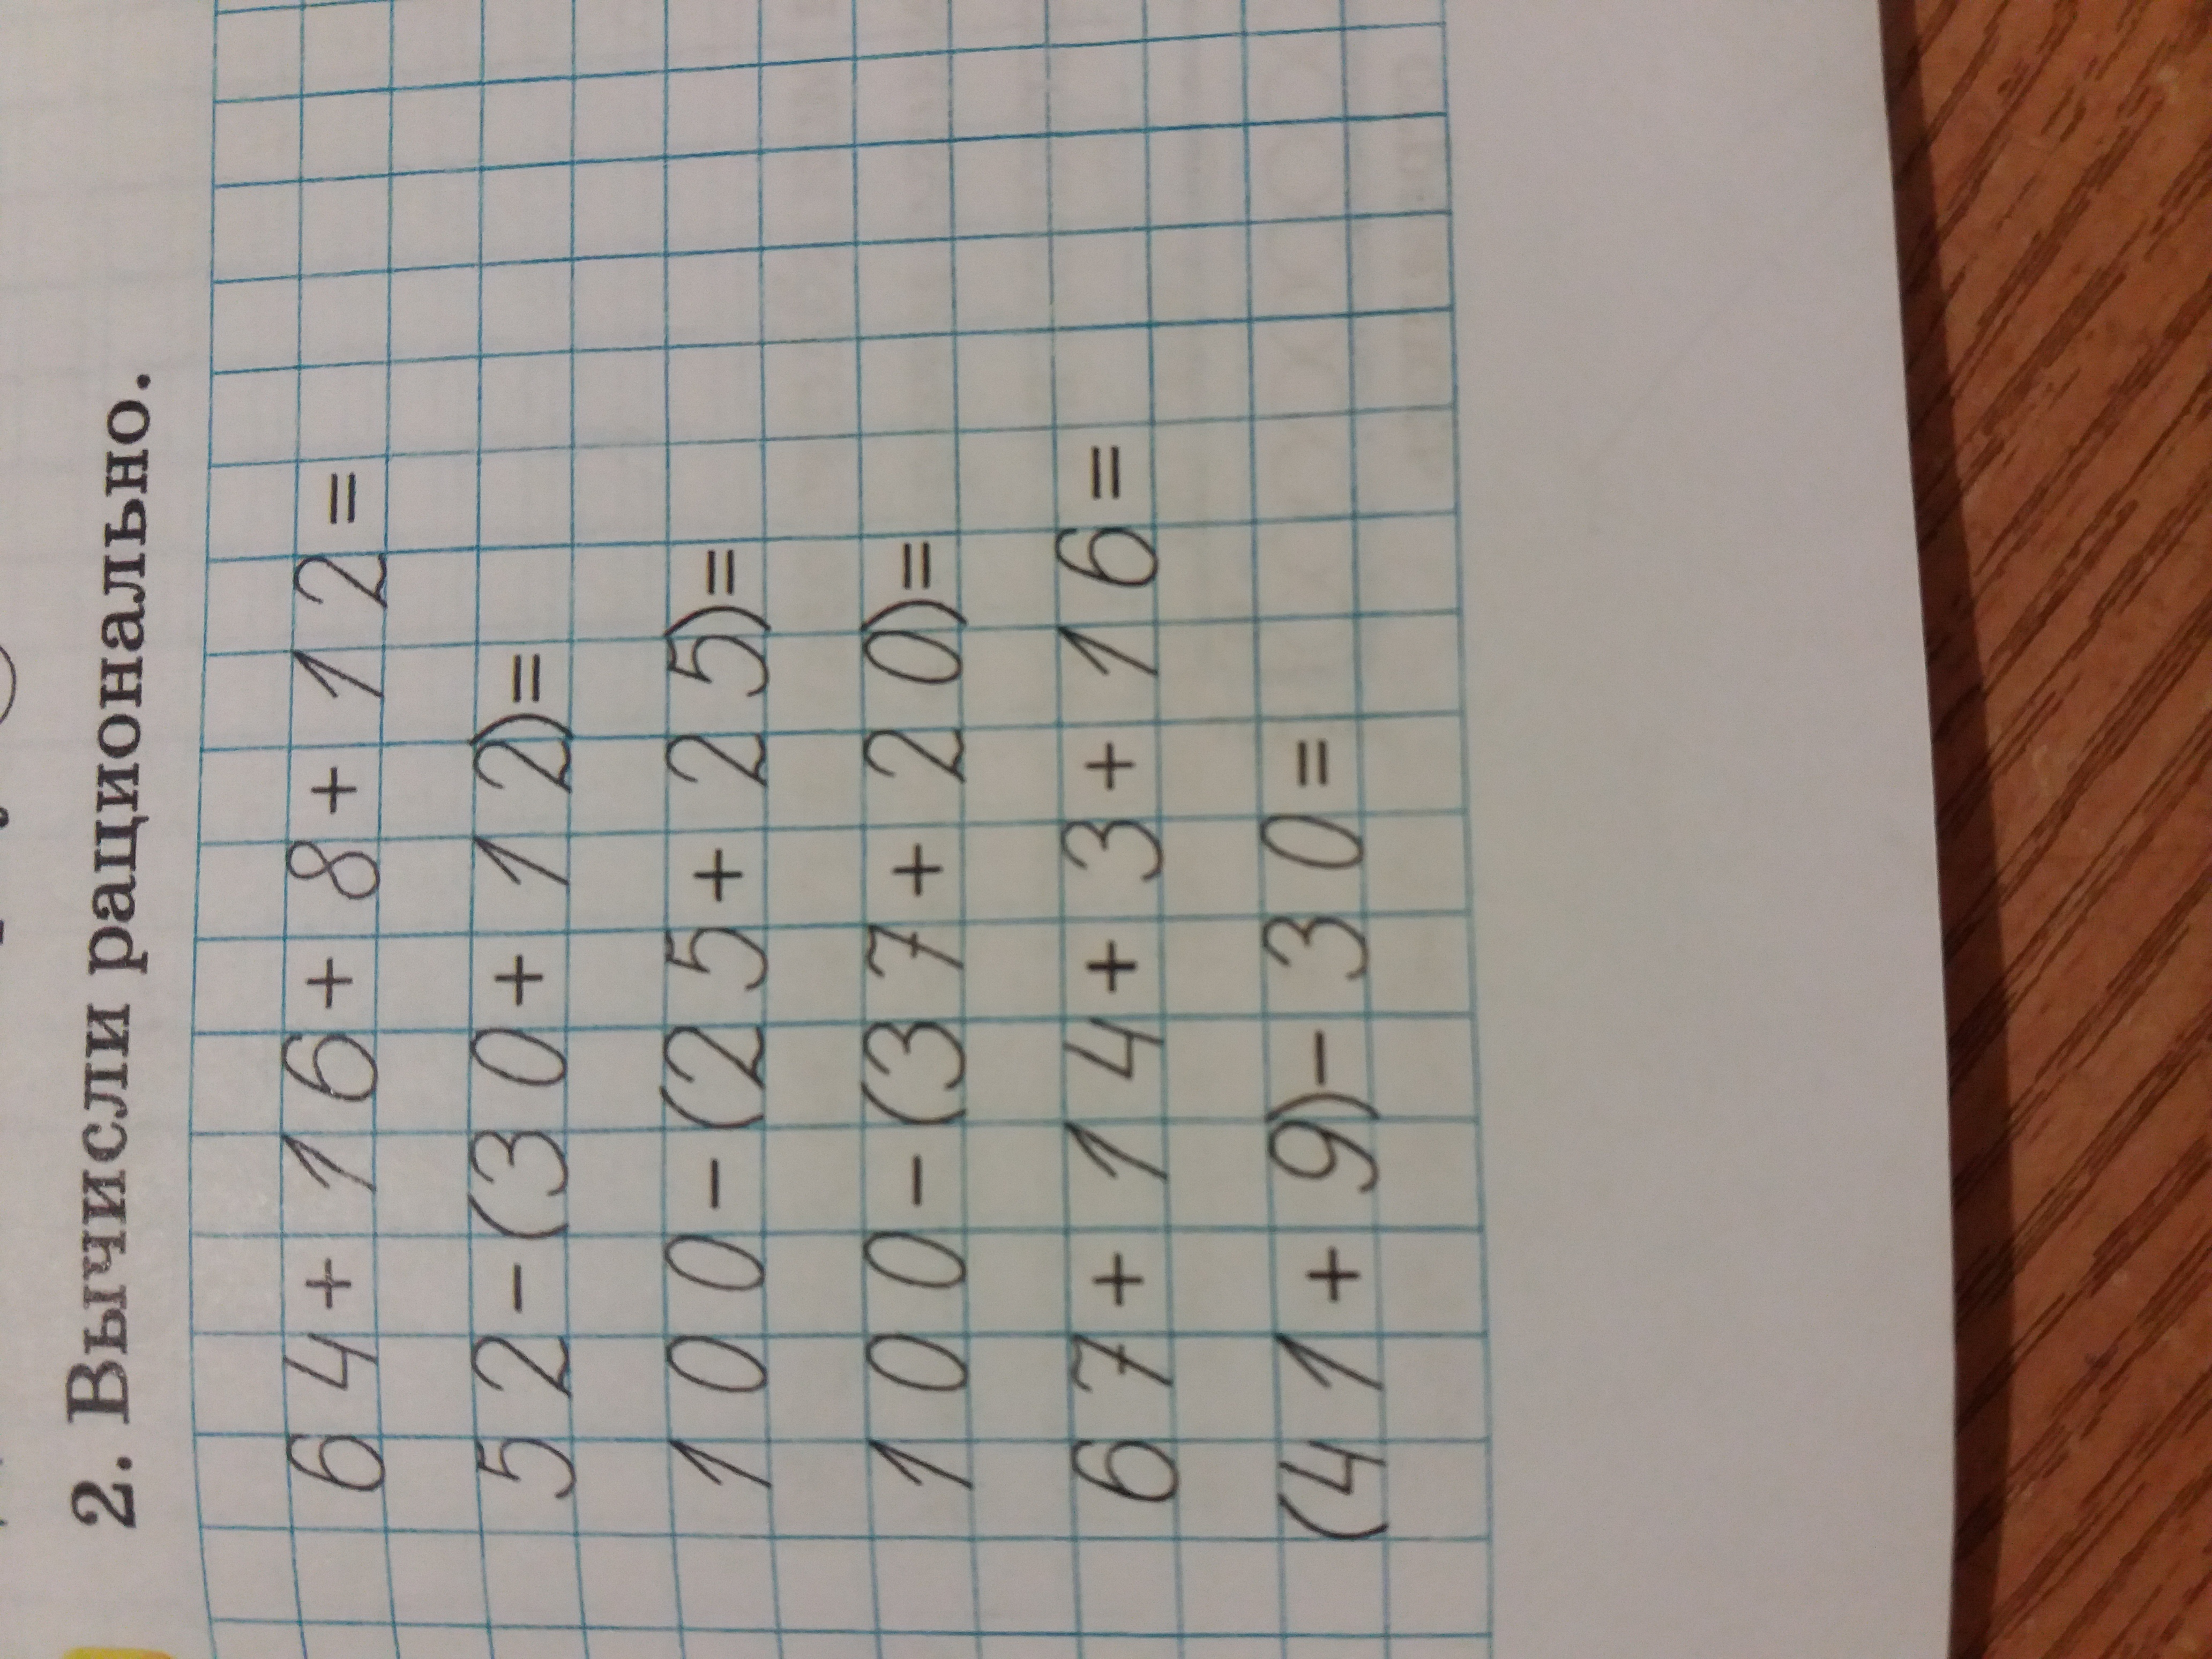 2. Вычисли рационально.
64+16+8+12=
52-(30+12)=
100-(25+25)=
100-(37+20)=
67+14+3+16=
(41+9)-30=